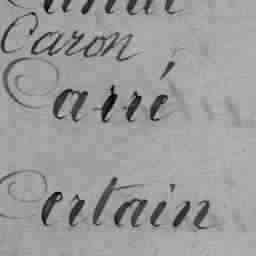 Caron
Carré
Certain